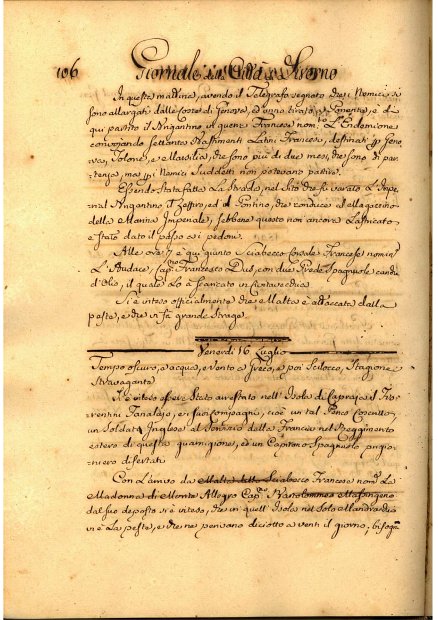 106 Giornale della Città di Livorno
In questa mattina, avendo il Telegrafo segnato che i Nemici si
sono allargati dalle Coste di Genova, ed anno tirato a Ponente, è di
qui partito il Brigantino di guerra Francese nom.to L'Endimione
convojando settanta Bastimenti Latini Francesi, destinati p Geno
va, Tolone, e Marsilia, che sono più di due mesi, che sono di par
tenza, ma p i Nemici suddetti non potevano partire.
Essendo stata fatta la strada, nel sito che fu varato l'Impe
rial Brigantino il Zeffiro, ed il Pontino, che conduce al Magazzino
della Marina Imperiale, sebbene questo non ancora lastricato
è stato dato il passo a i pedoni.
Alle ore 7 è qui giunto Sciabecco Corsale Francese nomin
L'Audace, Cap.no Francesco Dus, con due Prede Spagnuole cariche
d'Olio, il quale lo à scaricato in
Si è inteso officialmente che Malta è attaccata dalla
peste, e che vi fa grande strage.
Venerdì 16 Luglio
Tempo oscuro, ad acqua, e vento a Greco, e poi Scilocco, Stagione
Stravagante
Si è inteso essere stato arrestato nell'Isola di Capraja il Fio
rentini Tanalajo, e i suoi Compagni, cioè un tal Pino Corcutto,
un Soldato Inglese al Servizio della Francia nel Reggimento
estero di questa guarnigione, ed un Capitano Spagnuolo prigio
niero disertati.
Con l'arrivo da Malta dello Sciabecco Francese nom.to La
Madonna di Monte Allegro Cap.no Bartolommeo
dal suo deposto si è inteso, che in quell'Isola nel solo
vi è la peste, e che ne perivano diciotto a venti il giorno; bisogn